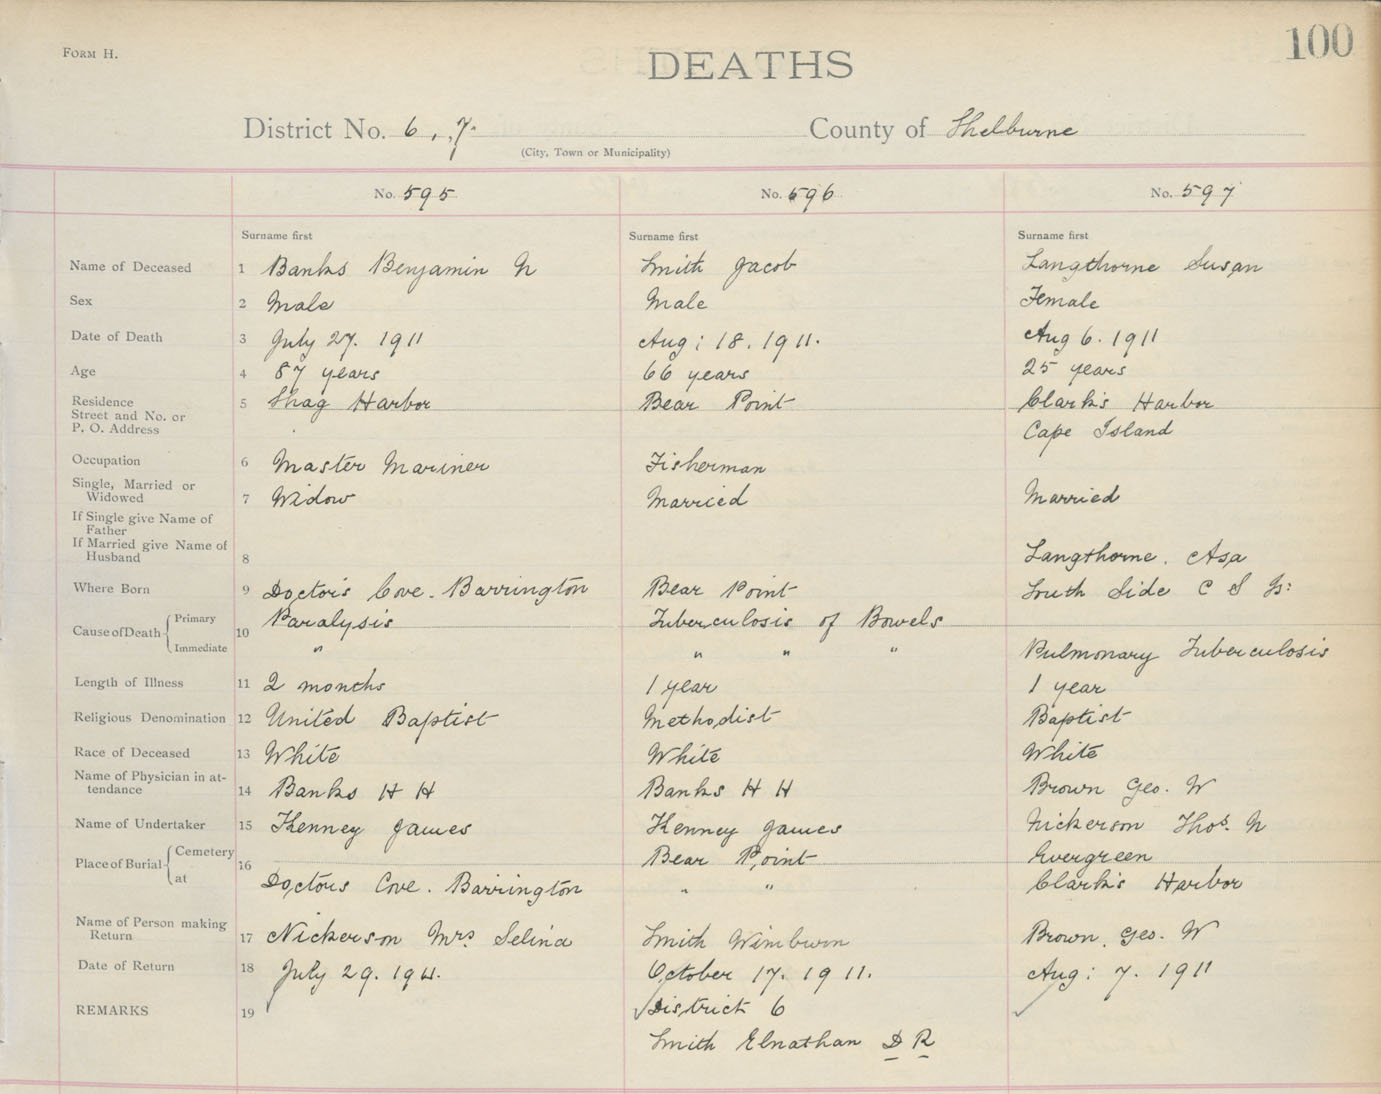 FORM H.
DEATHS
100
District No. 6, 7.
County of Shelburne
(City, Town or Municipality)
No. 595
No. 596
No. 597
Surname first
Surname first
Surname first
Name of Deceased 1 Banks Benjamin N
Smith Jacob
Langthorne Susan
Sex 2 Male
Male
Female
Date of Death 3 July 27. 1911
Aug: 18. 1911.
Aug 6. 1911
Age 4 87 years
66 years
25 years
Residence
Street and No. or
P. O. Address
5 Shag Harbor
Bear Point
Clark's Harbor
Cape Island
Occupation 6 Master Mariner
Fisherman
Single, Married or
Widowed
7 Widow
Married
Married
If Single give Name of
Father
If Married give Name of
Husband
8
Langthorne. Asa
Where Born 9 Doctor's Cove. Barrington
Bear Point
South Side C S I:
Cause of Death Primary
Immediate
10 Paralysis
"
Tuberculosis of Bowels
" " "
Pulmonary Tuberculosis
Length of Illness 11 2 months
1 year
1 year
Religious Denomination 12 United Baptist
Methodist
Baptist
Race of Deceased 13 White
White
White
Name of Physician in at-
tendance
14 Banks H H
Banks H H
Brown Geo. W
Name of Undertaker 15 Kenney James
Kenney James
Nickerson Thos. N
Place of Burial Cemetery
at
16
Doctors Cove. Barrington
Bear Point
" "
Evergreen
Clark's Harbor
Name of Person making
Return
17 Nickerson Mrs Selina
Smith Wimburn
Brown. Geo. W
Date of Return 18 July 29. 1911.
October 17. 1911.
Aug: 7. 1911
REMARKS 19
District 6
Smith Elnathan D R